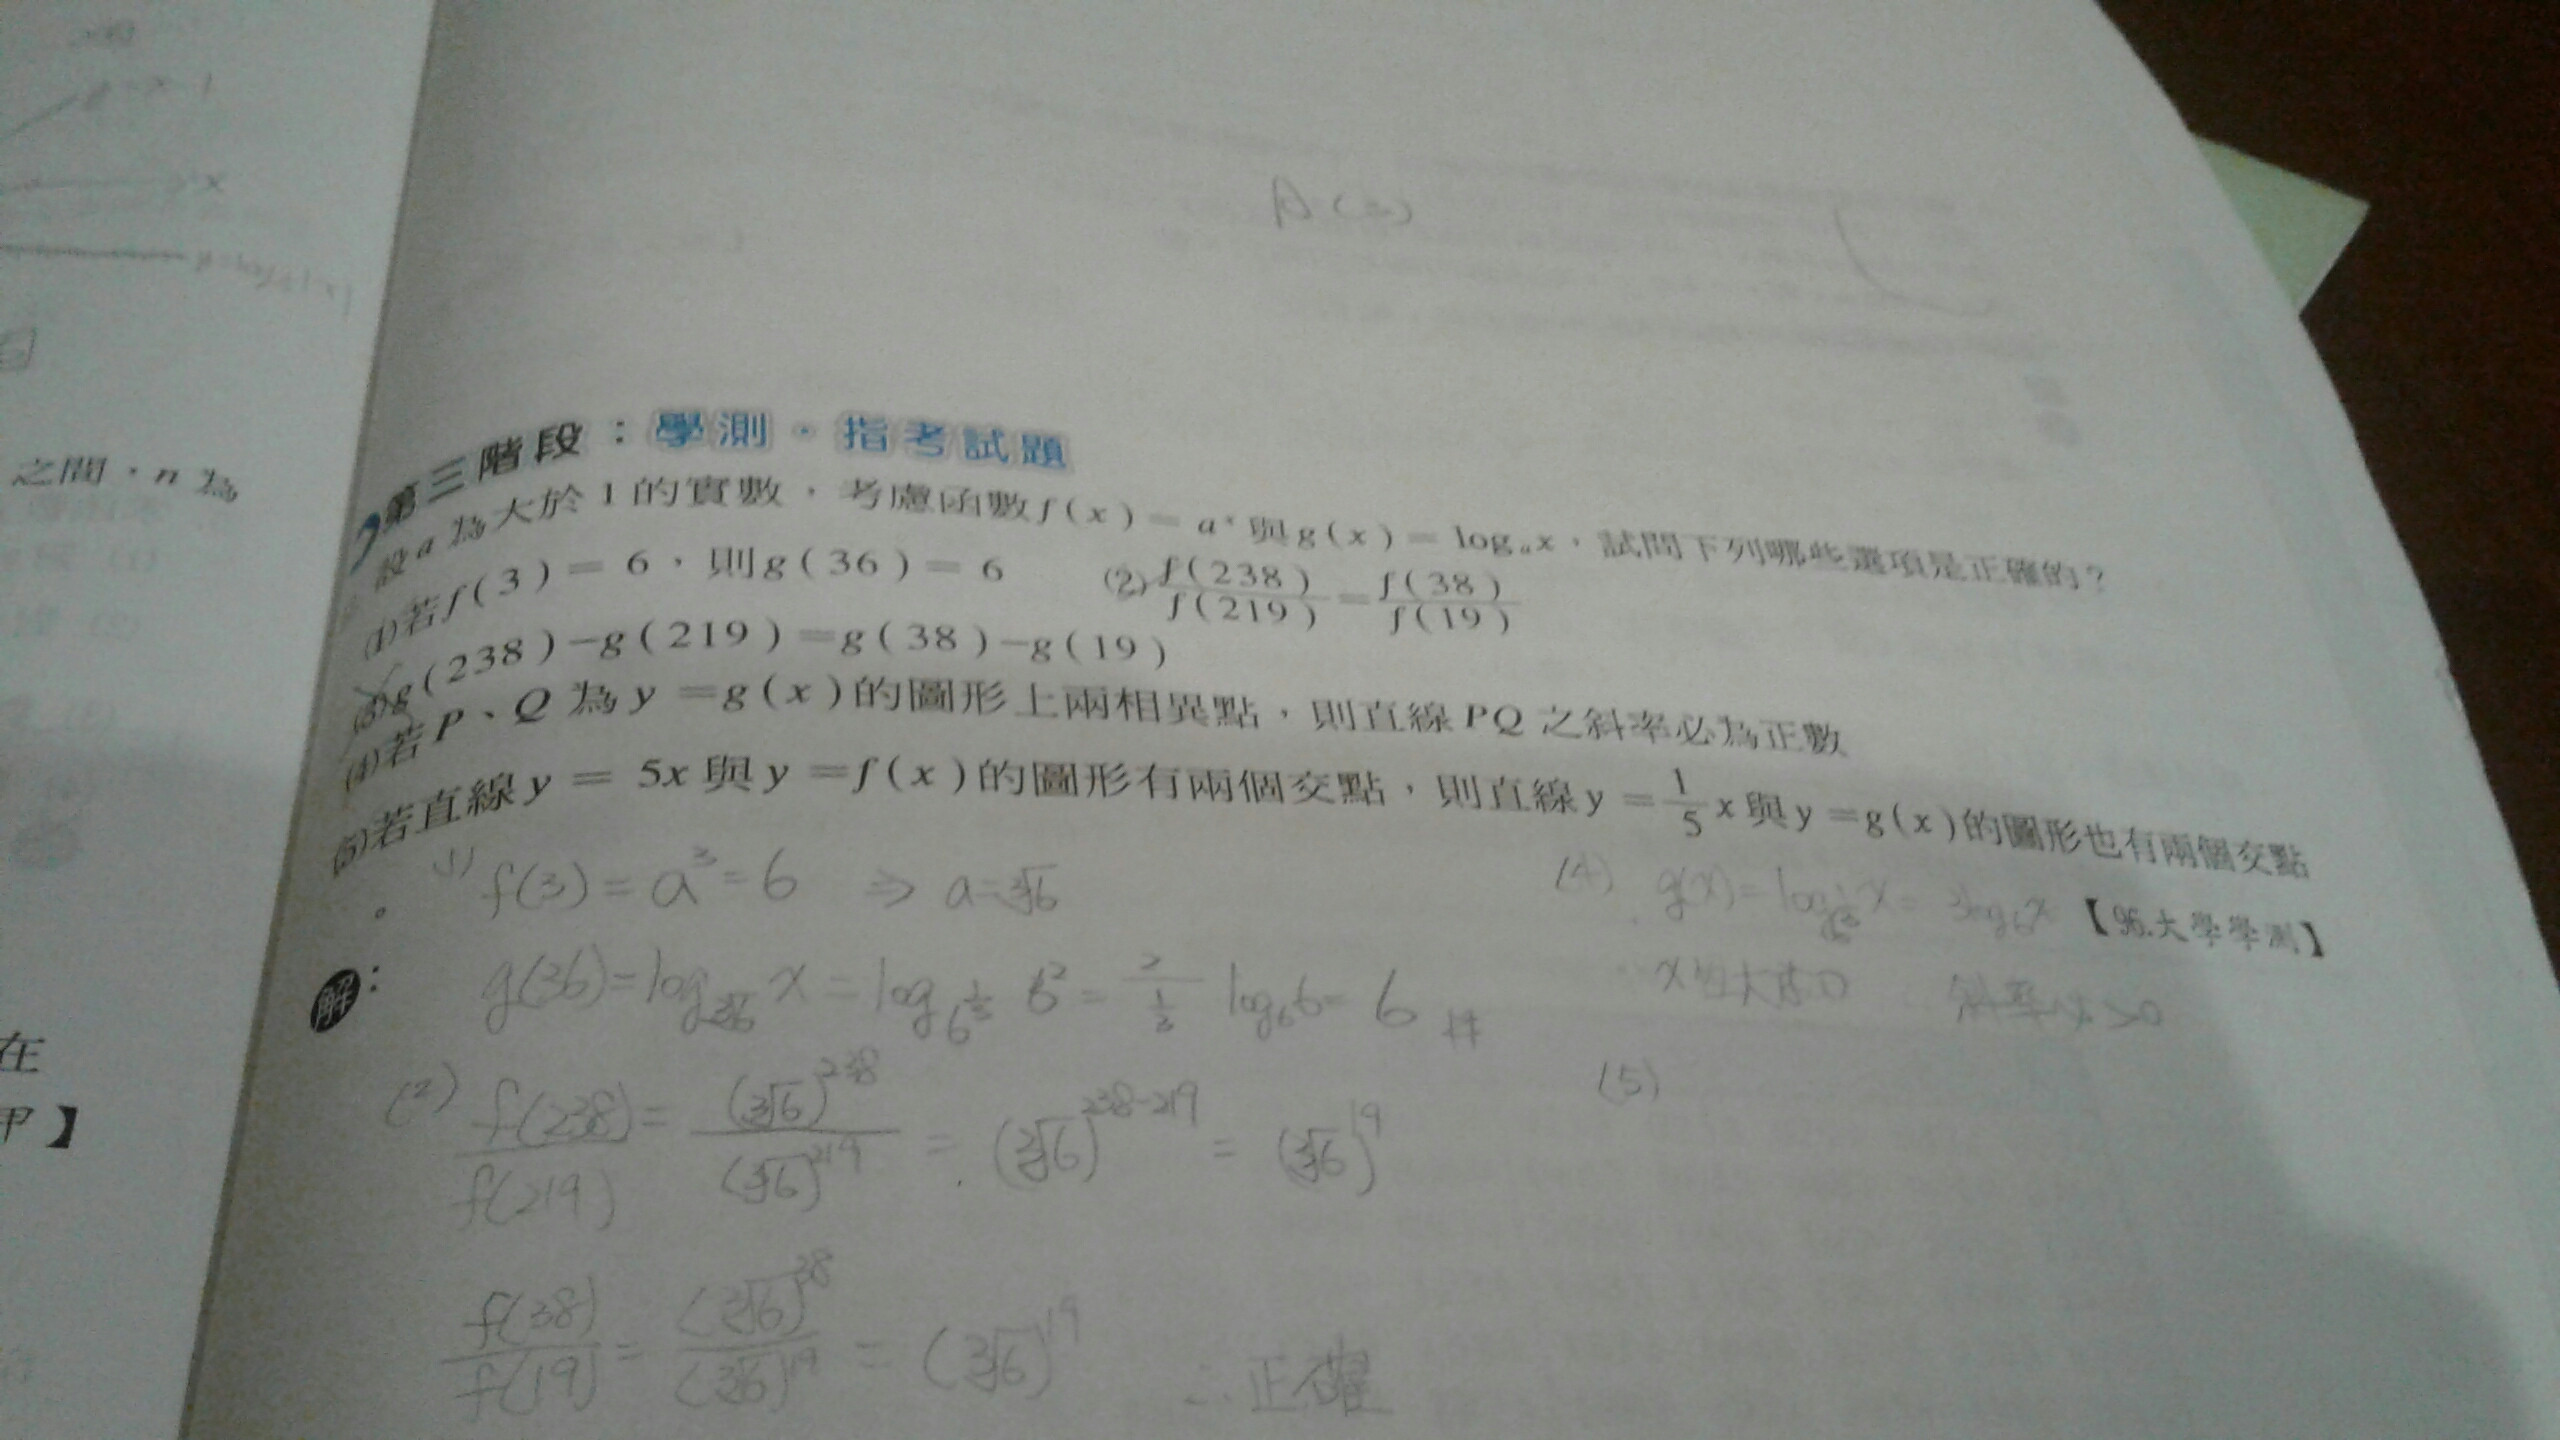 之間，n 為
在
甲】
A(2)
第三階段：學測・指考試題
設 a 為大於 1 的實數，考慮函數 f(x)=aˣ 與 g(x)=logₐx，試問下列哪些選項是正確的？
(1)若 f(3)=6，則 g(36)=6 (2) f(238)/f(219) = f(38)/f(19)
(3)g(238)－g(219)=g(38)－g(19)
(4)若 P、Q 為 y=g(x)的圖形上兩相異點，則直線 PQ 之斜率必為正數
(5)若直線 y=5x 與 y=f(x)的圖形有兩個交點，則直線 y=1/5 x 與 y=g(x)的圖形也有兩個交點
【96.大學學測】
解：
(1) f(3)=a³=6 ⇒ a=∛6
g(36)=log_∛6 x = log_6^(1/3) 6² = 2/(1/3) log₆6 = 6 #
(2) f(238)/f(219) = (∛6)^238/(∛6)^219 = (∛6)^(238-219) = (∛6)^19
f(38)/f(19) = (∛6)^38/(∛6)^19 = (∛6)^19 ∴正確
(4) g(x)=log_6^(1/3) x = 3log₆x
x 大於0 斜率 >0
(5)